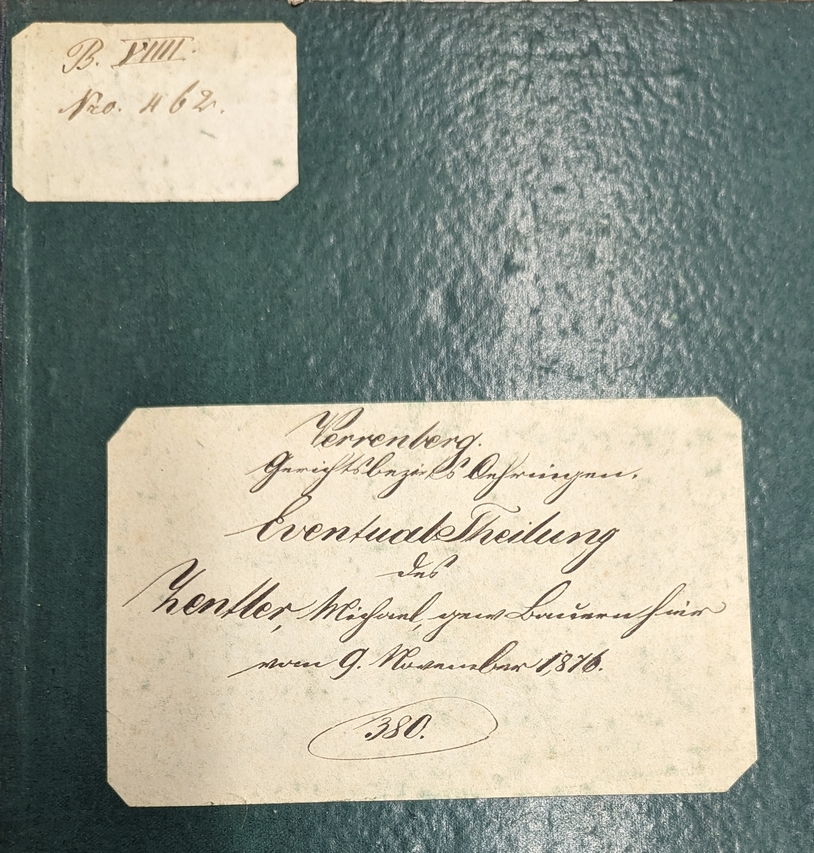 B. VIIII.
Nro. 462.
Verrenberg.
Gerichtsbezirks Oehringen.
Eventual-Theilung
des
Zentler, Michael, gew. Bauern hier
vom 9. November 1876.
380.